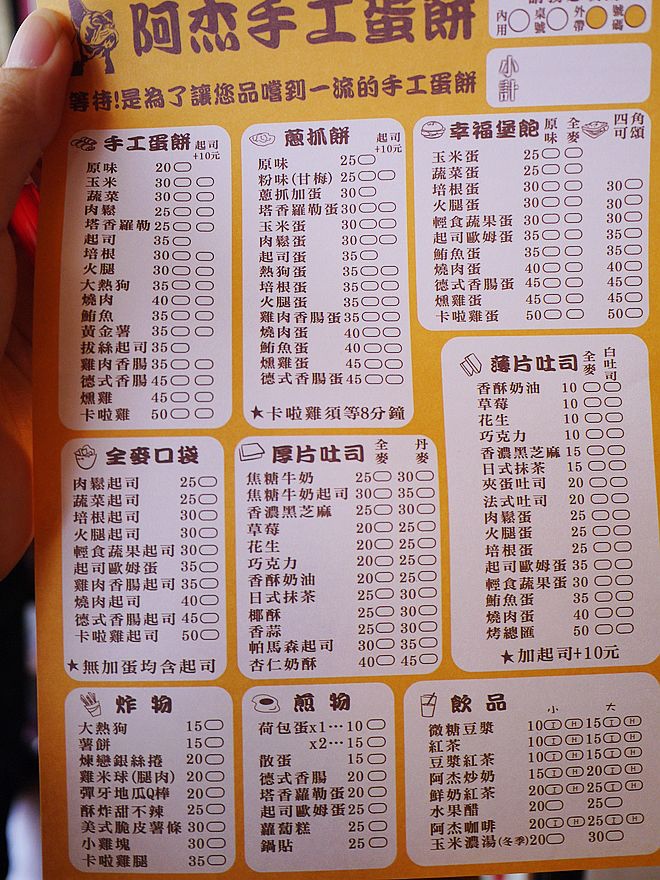 阿杰手工蛋餅
內用 桌號 外帶 號碼
等待!是為了讓您品嚐到一流的手工蛋餅
小計
手工蛋餅 起司+10元
原味 20
玉米 30
蔬菜 30
肉鬆 25
塔香羅勒 25
起司 35
培根 30
火腿 30
大熱狗 35
燒肉 40
鮪魚 35
黃金薯 35
拔絲起司 35
雞肉香腸 35
德式香腸 45
燻雞 45
卡啦雞 50
蔥抓餅 起司+10元
原味 25
粉味(甘梅) 25
蔥抓加蛋 30
塔香羅勒蛋 30
玉米蛋 30
肉鬆蛋 30
起司蛋 35
熱狗蛋 35
培根蛋 35
火腿蛋 35
雞肉香腸蛋 35
燒肉蛋 40
鮪魚蛋 40
燻雞蛋 45
德式香腸蛋 45
★卡啦雞須等8分鐘
幸福堡飽 原味 全麥 四角可頌
玉米蛋 25
蔬菜蛋 25
培根蛋 30 30
火腿蛋 30 30
輕食蔬果蛋 30 30
起司歐姆蛋 35 35
鮪魚蛋 35 35
燒肉蛋 40 40
德式香腸蛋 45 45
燻雞蛋 45 45
卡啦雞蛋 50 50
薄片吐司 全麥 白吐司
香酥奶油 10
草莓 10
花生 10
巧克力 10
香濃黑芝麻 15
日式抹茶 15
夾蛋吐司 20
法式吐司 20
肉鬆蛋 25
火腿蛋 25
培根蛋 25
起司歐姆蛋 35
輕食蔬果蛋 30
鮪魚蛋 35
燒肉蛋 40
烤總匯 50
★加起司+10元
全麥口袋
肉鬆起司 25
蔬菜起司 25
培根起司 30
火腿起司 30
輕食蔬果起司 30
起司歐姆蛋 35
雞肉香腸起司 35
燒肉起司 40
德式香腸起司 45
卡啦雞起司 50
★無加蛋均含起司
厚片吐司 全麥 丹麥
焦糖牛奶 25 30
焦糖牛奶起司 30 35
香濃黑芝麻 25 30
草莓 20 25
花生 20 25
巧克力 20 25
香酥奶油 20 25
日式抹茶 25 30
椰酥 25 30
香蒜 25 30
帕馬森起司 30 35
杏仁奶酥 40 45
炸物
大熱狗 15
薯餅 15
煉戀銀絲捲 20
雞米球(腿肉) 20
彈牙地瓜Q棒 20
酥炸甜不辣 25
美式脆皮薯條 30
小雞塊 30
卡啦雞腿 35
煎物
荷包蛋x1⋯10
x2⋯15
散蛋 15
德式香腸 20
塔香蘿勒蛋 20
起司歐姆蛋 25
蘿蔔糕 25
鍋貼 25
飲品 小 大
微糖豆漿 10 I H 15 I H
紅茶 10 I H 15 I H
豆漿紅茶 10 I H 15 I H
阿杰炒奶 15 I H 20 I H
鮮奶紅茶 20 I H 25 I H
水果醋 20 25
阿杰咖啡 20 I H 25 I H
玉米濃湯(冬季) 20 30